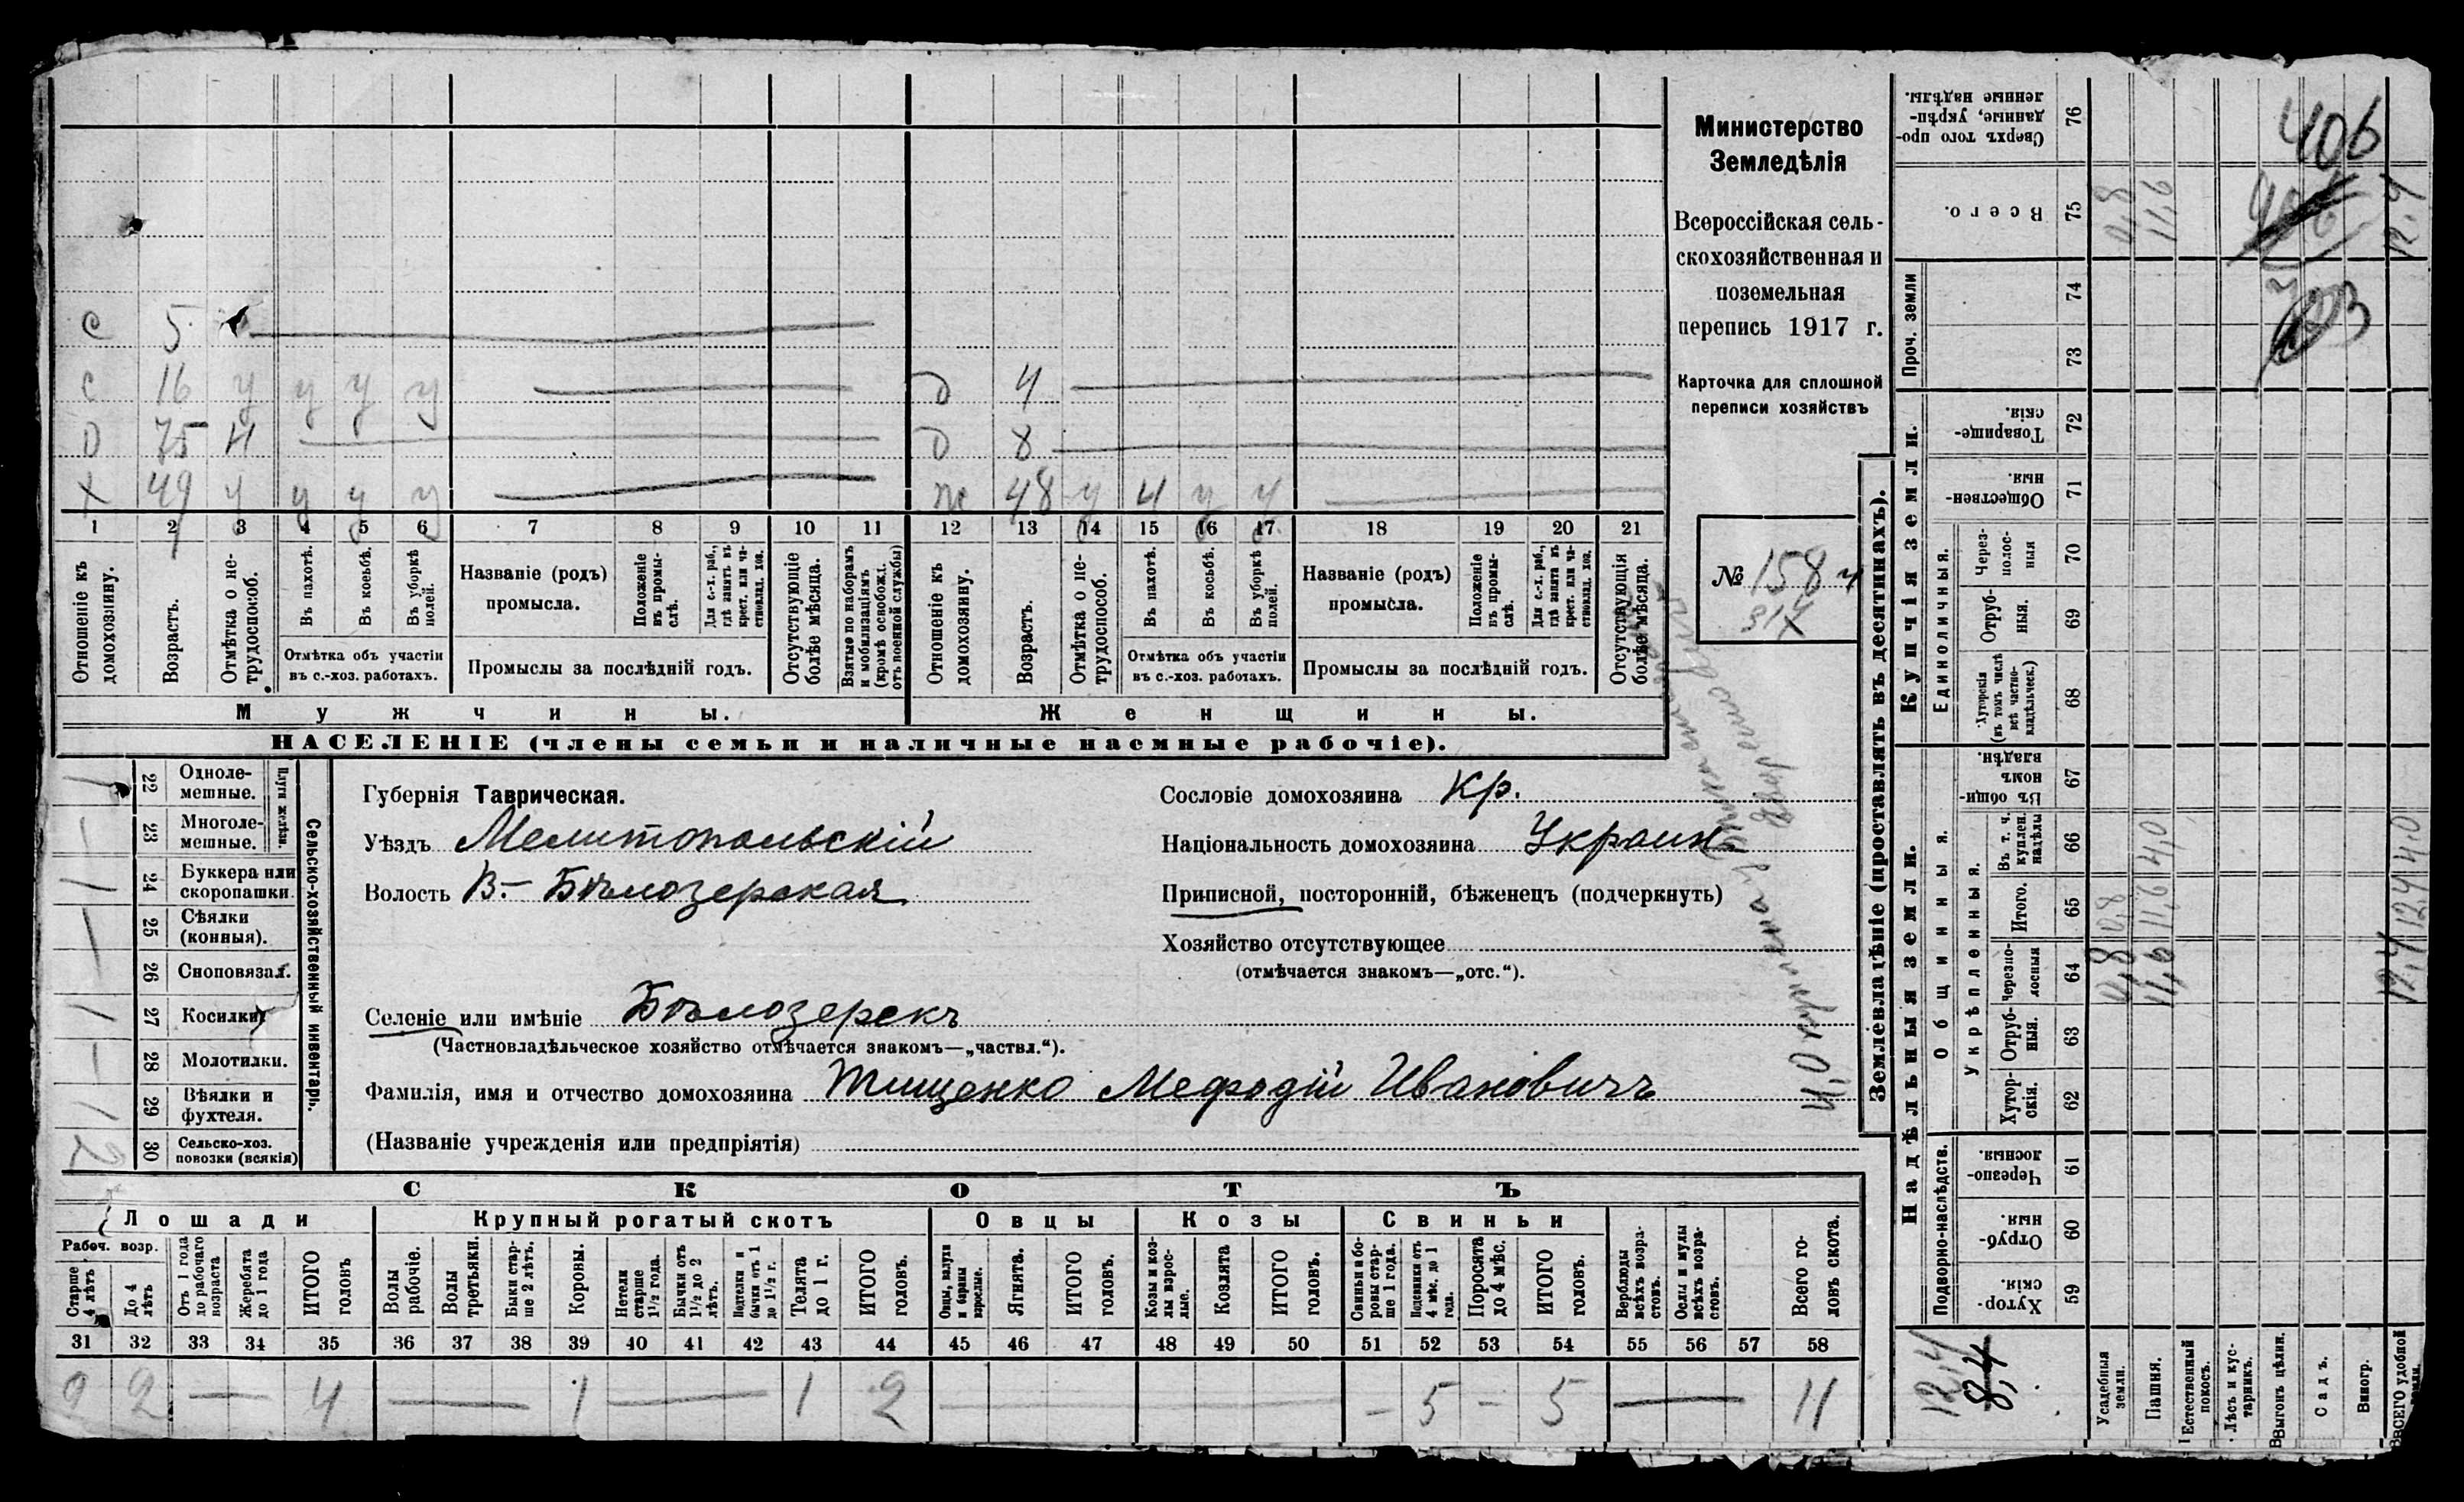 Министерство
Земледѣлія
Всероссійская сель-
скохозяйственная и
поземельная
перепись 1917 г.
Карточка для сплошной
переписи хозяйствъ
№ 158
31
с 5
с 16 у у у у
о 75 н
х 49 у у у у
д 4
д 8
ж 48 у ч у у
1 2 3 4 5 6 7 8 9 10 11 12 13 14 15 16 17 18 19 20 21
Отношеніе къ домохозяину.
Возрастъ.
Отмѣтка о не-трудоспособ.
Въ пахотѣ.
Въ косьбѣ.
Въ уборкѣ полей.
Отмѣтка объ участіи
въ с.-хоз. работахъ.
Названіе (родъ)
промысла.
Положеніе въ промы-слѣ.
Для с.-х. раб., гдѣ занятъ въ крест. или ча-стновлад. хоз.
Промыслы за послѣдній годъ.
Отсутствующіе болѣе мѣсяца.
Взятые по наборамъ и мобилизаціямъ (кромѣ освобожд. отъ военной службы)
Отношеніе къ домохозяину.
Возрастъ.
Отмѣтка о не-трудоспособ.
Въ пахотѣ.
Въ косьбѣ.
Въ уборкѣ полей.
Отмѣтка объ участіи
въ с.-хоз. работахъ.
Названіе (родъ)
промысла.
Положеніе въ промы-слѣ.
Для с.-х. раб., гдѣ занята въ крест. или ча-стновлад. хоз.
Промыслы за послѣдній годъ.
Отсутствующія болѣе мѣсяца.
Мужчины.
Женщины.
НАСЕЛЕНІЕ (члены семьи и наличные наемные рабочіе).
Сельско-хозяйственный инвентарь.
Плуги желѣзн.
1 22 Одноле-мешные.
— 23 Многоле-мешные.
1 24 Буккера или скоропашки.
— 25 Сѣялки (конныя).
26 Сноповязал.
1 27 Косилки
— 28 Молотилки.
1 29 Вѣялки и фухтеля.
2 30 Сельско-хоз. повозки (всякія)
Губернія Таврическая.
Уѣздъ Мелитопольскій
Волость В.-Бѣлозерская
Селеніе или имѣніе Бѣлозерскъ
(Частновладѣльческое хозяйство отмѣчается знакомъ—„частвл.“).
Фамилія, имя и отчество домохозяина Тищенко Мефодій Ивановичъ
(Названіе учрежденія или предпріятія)
Сословіе домохозяина кр.
Національность домохозяина Украин.
Приписной, посторонній, бѣженецъ (подчеркнуть)
Хозяйство отсутствующее
(отмѣчается знакомъ—„отс.“).
СКОТЪ
Лошади
Крупный рогатый скотъ
Овцы
Козы
Свиньи
Рабоч. возр.
Старше 4 лѣтъ
До 4 лѣтъ
Отъ 1 года до рабочаго возраста
Жеребята до 1 года
ИТОГО головъ
Волы рабочіе.
Волы третьяки.
Быки стар-ше 2 лѣтъ.
Коровы.
Нетели старше 1½ года.
Бычки отъ 1½ до 2 лѣтъ.
Подтелки и бычки отъ 1 до 1½ г.
Телята до 1 г.
ИТОГО головъ.
Овцы, валухи и бараны взрослые.
Ягнята.
ИТОГО головъ.
Козы и коз-лы взрос-лые.
Козлята
ИТОГО головъ.
Свиньи и бо-ровы стар-ше 1 года.
Подсвинки отъ 4 мѣс. до 1 года.
Поросята до 4 мѣс.
ИТОГО головъ.
Верблюды всѣхъ возра-стовъ.
Ослы и мулы всѣхъ возра-стовъ.
Всего го-ловъ скота.
31 32 33 34 35 36 37 38 39 40 41 42 43 44 45 46 47 48 49 50 51 52 53 54 55 56 57 58
2 2 — 4 — 1 — 1 2 — — 5 — 5 — 11
Землевладѣніе (проставлять въ десятинахъ).
Надѣльныя земли.
Купчія земли.
Проч. земли
Подворно-наслѣдств.
Общинныя.
Укрѣпленныя.
Единоличныя.
Хутор-скія. 59
Отруб-ныя. 60
Черезпо-лосныя. 61
Хутор-скія. 62
Отруб-ныя. 63
Черезпо-лосныя 64 0,8 11,6 12,4
Итого. 65 0,8 11,6 12,4
Въ т. ч. куплен. надѣлы 66 4,0 4,0
Въ общи-номъ владѣн. 67
Хуторскія (въ томъ числѣ всѣ частно-владѣльческ.) 68
Отруб-ныя. 69
Через-полос-ныя 70
Обществен-ныя. 71
Товарище-скія. 72
73
74
Всего. 75 0,8 11,6 12,4
Сверхъ того про-данные, укрѣп-ленные надѣлы. 76
406
12,4
8,4
Усадебныя земли.
Пашня.
Естественный покосъ.
Лѣсъ и кус-тарникъ.
Выгонъ цѣлин.
Садъ.
Виногр.
ВСЕГО удобной земли.